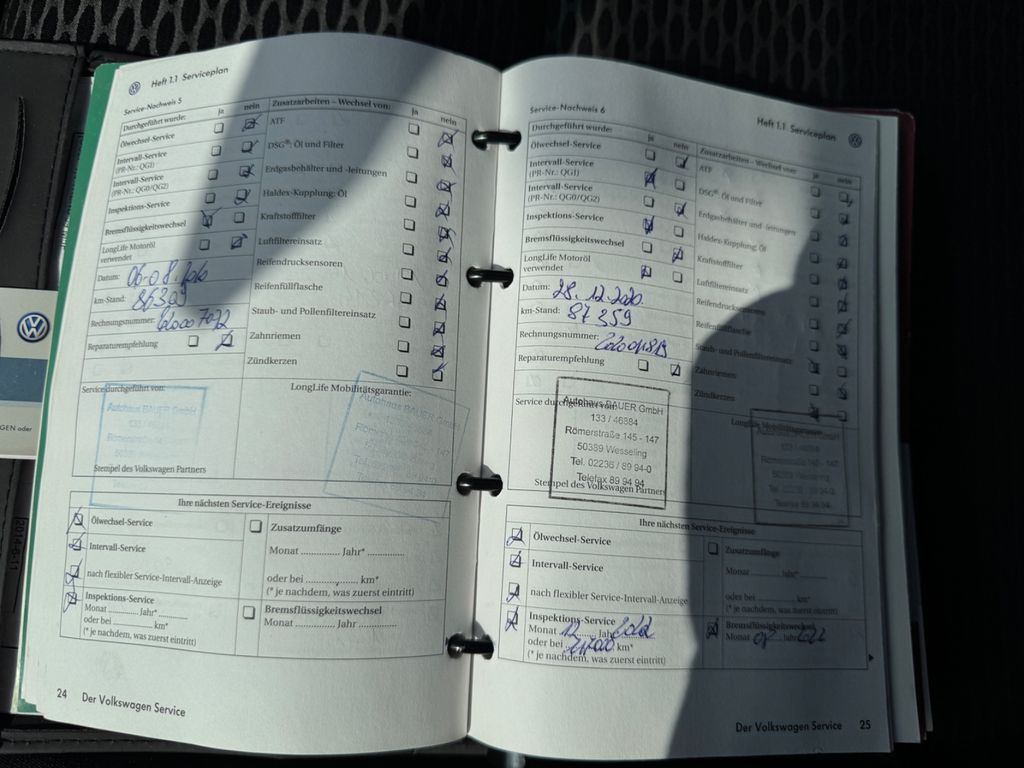 Heft 1.1 Serviceplan
Service-Nachweis 5
Durchgeführt wurde: ja nein
Ölwechsel-Service
Intervall-Service
(PR-Nr.: QG1)
Intervall-Service
(PR-Nr.: QG0/QG2)
Inspektions-Service
Bremsflüssigkeitswechsel
LongLife Motoröl
verwendet
Datum: 06.08.2020
km-Stand: 86309
Rechnungsnummer:
Reparaturempfehlung
Zusatzarbeiten – Wechsel von: ja nein
ATF
DSG®: Öl und Filter
Erdgasbehälter und -leitungen
Haldex-Kupplung: Öl
Kraftstofffilter
Luftfiltereinsatz
Reifendrucksensoren
Reifenfüllflasche
Staub- und Pollenfiltereinsatz
Zahnriemen
Zündkerzen
Service durchgeführt von:
Autohaus BAUER GmbH
Stempel des Volkswagen Partners
LongLife Mobilitätsgarantie:
Autohaus BAUER GmbH
Ihre nächsten Service-Ereignisse
Ölwechsel-Service
Intervall-Service
nach flexibler Service-Intervall-Anzeige
Inspektions-Service
Monat ............ Jahr* ............
oder bei ............ km*
(* je nachdem, was zuerst eintritt)
Zusatzumfänge
Monat ............ Jahr* ............
oder bei ............ km*
(* je nachdem, was zuerst eintritt)
Bremsflüssigkeitswechsel
Monat ............ Jahr ............
24 Der Volkswagen Service
Heft 1.1 Serviceplan
Service-Nachweis 6
Durchgeführt wurde: ja nein
Ölwechsel-Service
Intervall-Service
(PR-Nr.: QG1)
Intervall-Service
(PR-Nr.: QG0/QG2)
Inspektions-Service
Bremsflüssigkeitswechsel
LongLife Motoröl
verwendet
Datum: 28.12.2020
km-Stand: 87359
Rechnungsnummer:
Reparaturempfehlung
Zusatzarbeiten – Wechsel von: ja nein
ATF
DSG®: Öl und Filter
Erdgasbehälter und -leitungen
Haldex-Kupplung: Öl
Kraftstofffilter
Luftfiltereinsatz
Reifendrucksensoren
Reifenfüllflasche
Staub- und Pollenfiltereinsatz
Zahnriemen
Zündkerzen
Service durchgeführt von:
Autohaus BAUER GmbH
133 / 46384
Römerstraße 145 - 147
50389 Wesseling
Tel. 02236 / 89 94-0
Telefax 89 94 94
Stempel des Volkswagen Partners
LongLife Mobilitätsgarantie:
Ihre nächsten Service-Ereignisse
Ölwechsel-Service
Intervall-Service
nach flexibler Service-Intervall-Anzeige
Inspektions-Service
Monat 12 Jahr* 2022
oder bei km*
(* je nachdem, was zuerst eintritt)
Zusatzumfänge
Monat ............ Jahr* ............
oder bei ............ km*
(* je nachdem, was zuerst eintritt)
Bremsflüssigkeitswechsel
Monat Jahr 2022
Der Volkswagen Service 25